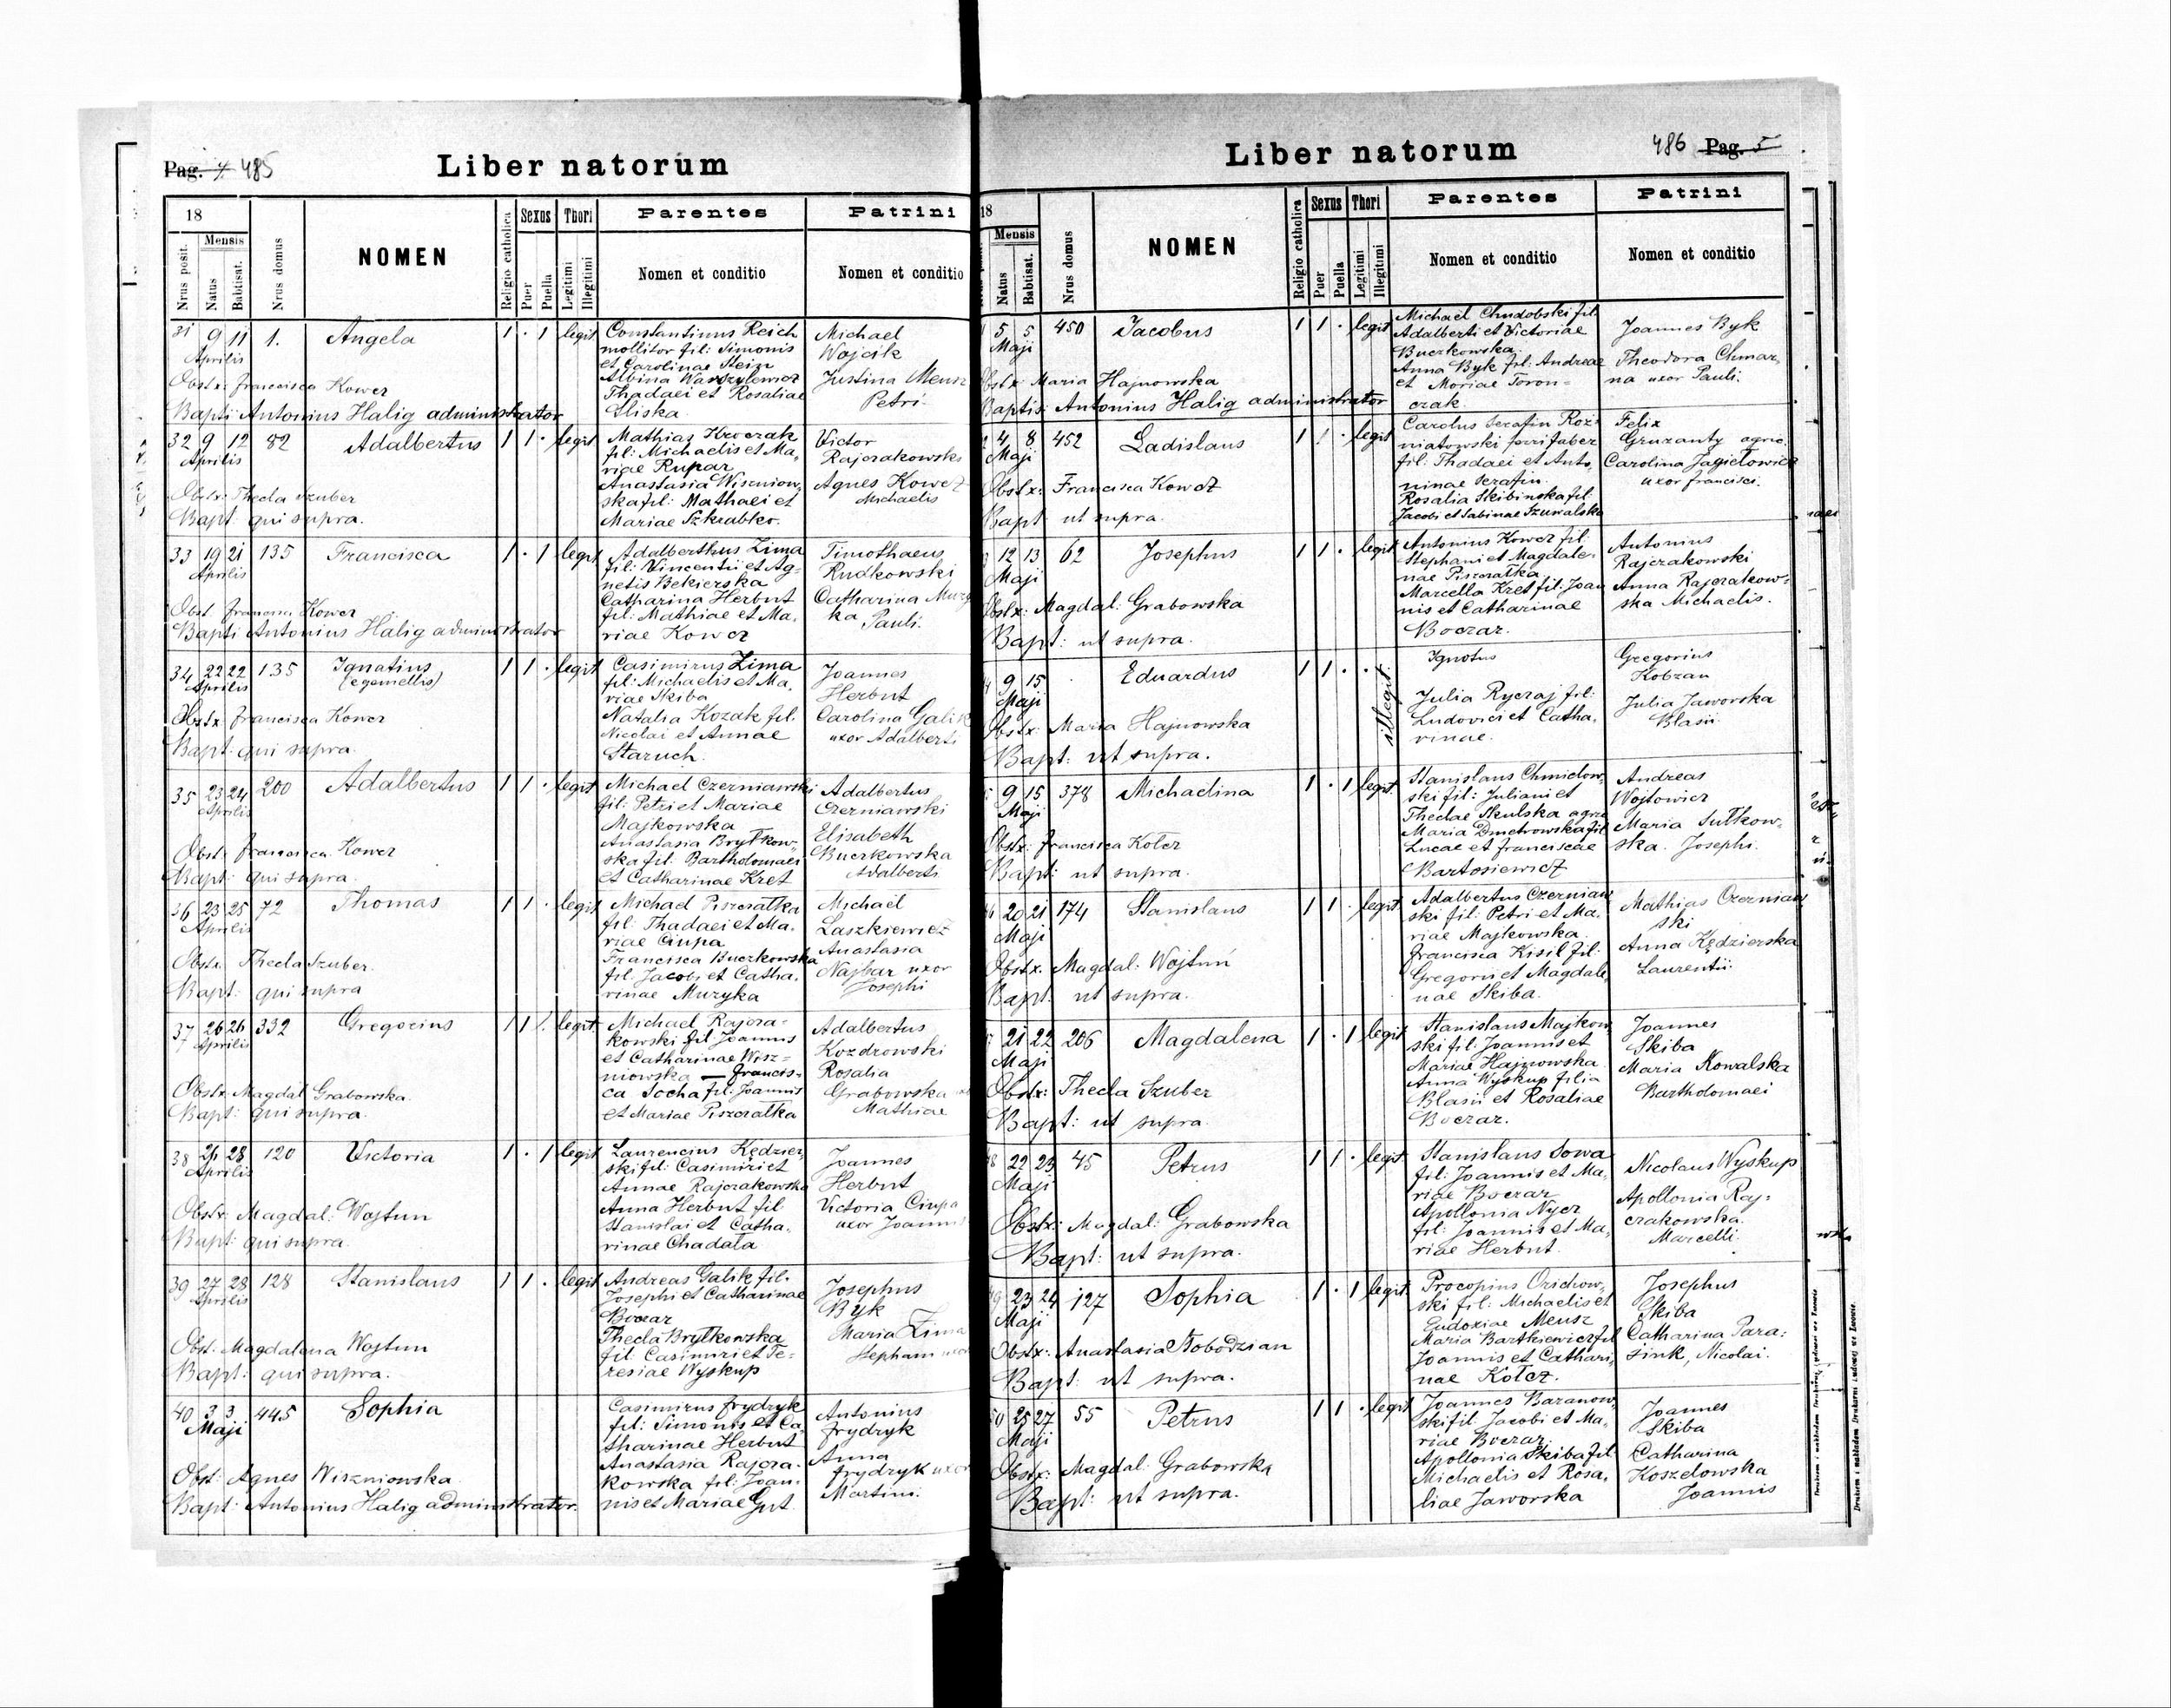 Pag. 4. 485
Liber natorum
18
Mensis
Nrus posit.
Natus
Babtisat.
Nrus domus
NOMEN
Religio catholica
Sexus
Puer
Puella
Thori
Legitimi
Illegitimi
Parentes
Nomen et conditio
Patrini
Nomen et conditio
31 9 11 1. Angela 1 · 1 legit
Aprilis
Constantinus Reich
mollitor fil: Simonis
et Carolinae Stein
Albina Waszylewicz
Thadaei et Rosaliae
Sliska
Michael
Wojcik
Justina Meusz
Petri
Obstx: Francisca Kowcz
Bapti Antonius Halig administrator
32 9 12 82 Adalbertus 1 1 · legit
Aprilis
Mathias Kroczak
fil: Michaelis et Ma,
riae Rupar
Anastasia Wiszniow,
ska fil: Mathaei et
Mariae Szkrabko.
Victor
Rajczakowski
Agnes Kowcz
Michaelis
Obstx: Thecla Szuber
Bapt: qui supra.
33 19 21 135 Francisca 1 · 1 legit
Aprilis
Adalberthus Zima
fil: Vincentii et Ag-
netis Bekierska
Catharina Herbut
fil: Mathiae et Ma,
riae Kowcz
Timothaeus
Rudkowski
Catharina
ka Pauli.
Obst. Francisca Kowcz
Bapti Antonius Halig administrator
34 22 22 135 Ignatius 1 1 · legit
Aprilis (e gemellis)
Casimirus Zima
fil: Michaelis et Ma,
riae Skiba
Natalia Kozak fil.
Nicolai et Annae
Staruch.
Joannes
Herbut
Carolina Galik
uxor Adalberti
Obstx Francisca Kowcz
Bapt: qui supra.
35 23 24 200 Adalbertus 1 1 · legit
Aprilis
Michael Czerniawski
fil: Petri et Mariae
Majkowska
Anastasia Brytkow-
ska fil. Bartholomaei
et Catharinae Kret
Adalbertus
Czerniawski
Elisabeth
Buczkowska
Adalberti
Obst: Francisca Kowcz
Bapt: qui supra.
36 23 25 72 Thomas 1 1 · legit
Aprilis
Michael Piszczatka
fil: Thadaei et Ma,
riae Ciupa
Francisca Buczkowska
fil. Jacobi et Catha,
rinae Muzyka
Michael
Laszkiewicz
Anastasia
Najbar uxor
Josephi
Obstx. Thecla Szuber.
Bapt: qui supra
37 26 26 332 Gregorius 1 1 · legit.
Aprilis
Michael Rajcza-
kowski fil Joannis
et Catharinae Wisz-
niowska — Francis-
ca Socha fil: Joannis
et Mariae Piszczatka
Adalbertus
Kozdrowski
Rosalia
Grabowska
Mathiae
Obstx. Magdal Grabowska.
Bapt: qui supra.
38 28 120 Victoria 1 · 1 legit
Aprilis
Laurencius Kędzier,
ski fil: Casimiri et
Annae Rajczakowska
Anna Herbut fil.
Stanislai et Catha,
rinae Chadała
Joannes
Herbut
Victoria Ciupa
uxor Joannis
Obstx: Magdal: Wojtun
Bapt: qui supra.
39 27 28 128 Stanislaus 1 1 · legit
Aprilis
Andreas Galik fil.
Josephi et Catharinae
Boczar
Thecla Brytkowska
fil. Casimiri et Te-
resiae Wyskup
Josephus
Byk
Maria Zima
Stephani
Obst: Magdalena Wojtun
Bapt: qui supra.
40 3 3 445 Sophia
Maji
Casimirus Frydryk
fil: Simonis et Ca
tharinae Herbut
Anastasia Rajcza-
kowska fil: Joan-
nis et Mariae Gut.
Antonius
Frydryk
Anna
Frydryk uxor
Martini.
Obst: Agnes Wiszniowska.
Bapt: Antonius Halig administrator.
Liber natorum
486 Pag. 5
18
Mensis
Natus
Babtisat.
Nrus domus
NOMEN
Religio catholica
Sexus
Puer
Puella
Thori
Legitimi
Illegitimi
Parentes
Nomen et conditio
Patrini
Nomen et conditio
5 5 450 Jacobus 1 1 · legit
Maji
Michael Chudobski fil.
Adalberti et Victoriae
Buczkowska.
Anna Byk fil. Andreae
et Mariae Toron-
czak
Joannes Byk
Theodora Chmar,
na uxor Pauli.
Obstx Maria Hajnowska
Baptis: Antonius Halig administrator
4 8 452 Ladislaus 1 1 · legit
Maji
Carolus Serafin Roz-
niatowski ferri faber
fil: Thadaei et Anto,
ninae Serafin.
Rosalia Skibinska fil.
Jacobi et Sabinae Szuwalska
Felix
Gruzanty agric.
Carolina Jagielowicz
uxor Francisci.
Obstx: Francisca Kowcz
Bapt ut supra.
12 13 62 Josephus 1 1 · legit
Maji
Antonius Kowcz fil:
Stephani et Magdale-
nae Piszczatka.
Marcella Kret fil: Joan
nis et Catharinae
Boczar.
Antonius
Rajczakowski
Anna Rajczakow-
ska Michaelis.
Obstx: Magdal: Grabowska
Bapt: ut supra.
9 15 · Eduardus 1 1 · · illegit.
Maji
Ignotus
Julia Ryczaj fil:
Ludovici et Catha,
rinae.
Gregorius
Kobzan
Julia Jaworska
Blasii.
Obstx: Maria Hajnowska
Bapt: ut supra.
9 15 378 Michaelina 1 · 1 legit.
Maji
Stanislaus Chmielow,
ski fil: Juliani et
Theclae Skulska agric
Maria Dmetrowska fil
Lucae et Franciscae
Bartosiewicz
Andreas
Wojtowicz
Maria Sutkow-
ska. Josephi.
Obstx: Francisca Kotcz
Bapt: ut supra.
20 21 174 Stanislaus 1 1 · legit.
Maji
Adalbertus Czerniaw
ski fil: Petri et Ma,
riae Majkowska.
Francisca Kisil fil:
Gregorii et Magdale
nae Skiba.
Mathias Czerniaw
ski
Anna Kędzierska
Laurentii.
Obstx. Magdal: Wojtuń
Bapt: ut supra.
21 22 206 Magdalena 1 · 1 legit
Maji
Stanislaus Majkow
ski fil: Joannis et
Mariae Hajnowska.
Anna Wyskup filia
Blasii et Rosaliae
Boczar.
Joannes
Skiba
Maria Kowalska
Bartholomaei
Obstx: Thecla Szuber
Bapt: ut supra.
22 23 45 Petrus 1 1 · legit
Maji
Stanislaus Sowa
fil: Joannis et Ma,
riae Boczar
Apollonia Nycz
fil: Joannis et Ma,
riae Herbut.
Nicolaus Wyskup
Apollonia Raj-
czakowska.
Marcelli.
Obstx: Magdal: Grabowska
Bapt: ut supra.
23 24 127 Sophia 1 · 1 legit.
Maji
Procopius Orichow,
ski fil: Michaelis et
Eudoxiae Meusz
Maria Bartkiewicz fil
Joannis et Cathari,
nae Kotcz.
Josephus
Skiba
Catharina Para-
sink, Nicolai.
Obstx: Anastasia Słobodzian
Bapt: ut supra.
25 27 55 Petrus 1 1 · legit
Maji
Joannes Baranow
ski fil. Jacobi et Ma,
riae Boczar.
Apollonia Skiba fil
Michaelis et Rosa,
liae Jaworska
Joannes
Skiba
Catharina
Koszelowska
Joannis
Obstx: Magdal: Grabowska
Bapt: ut supra.